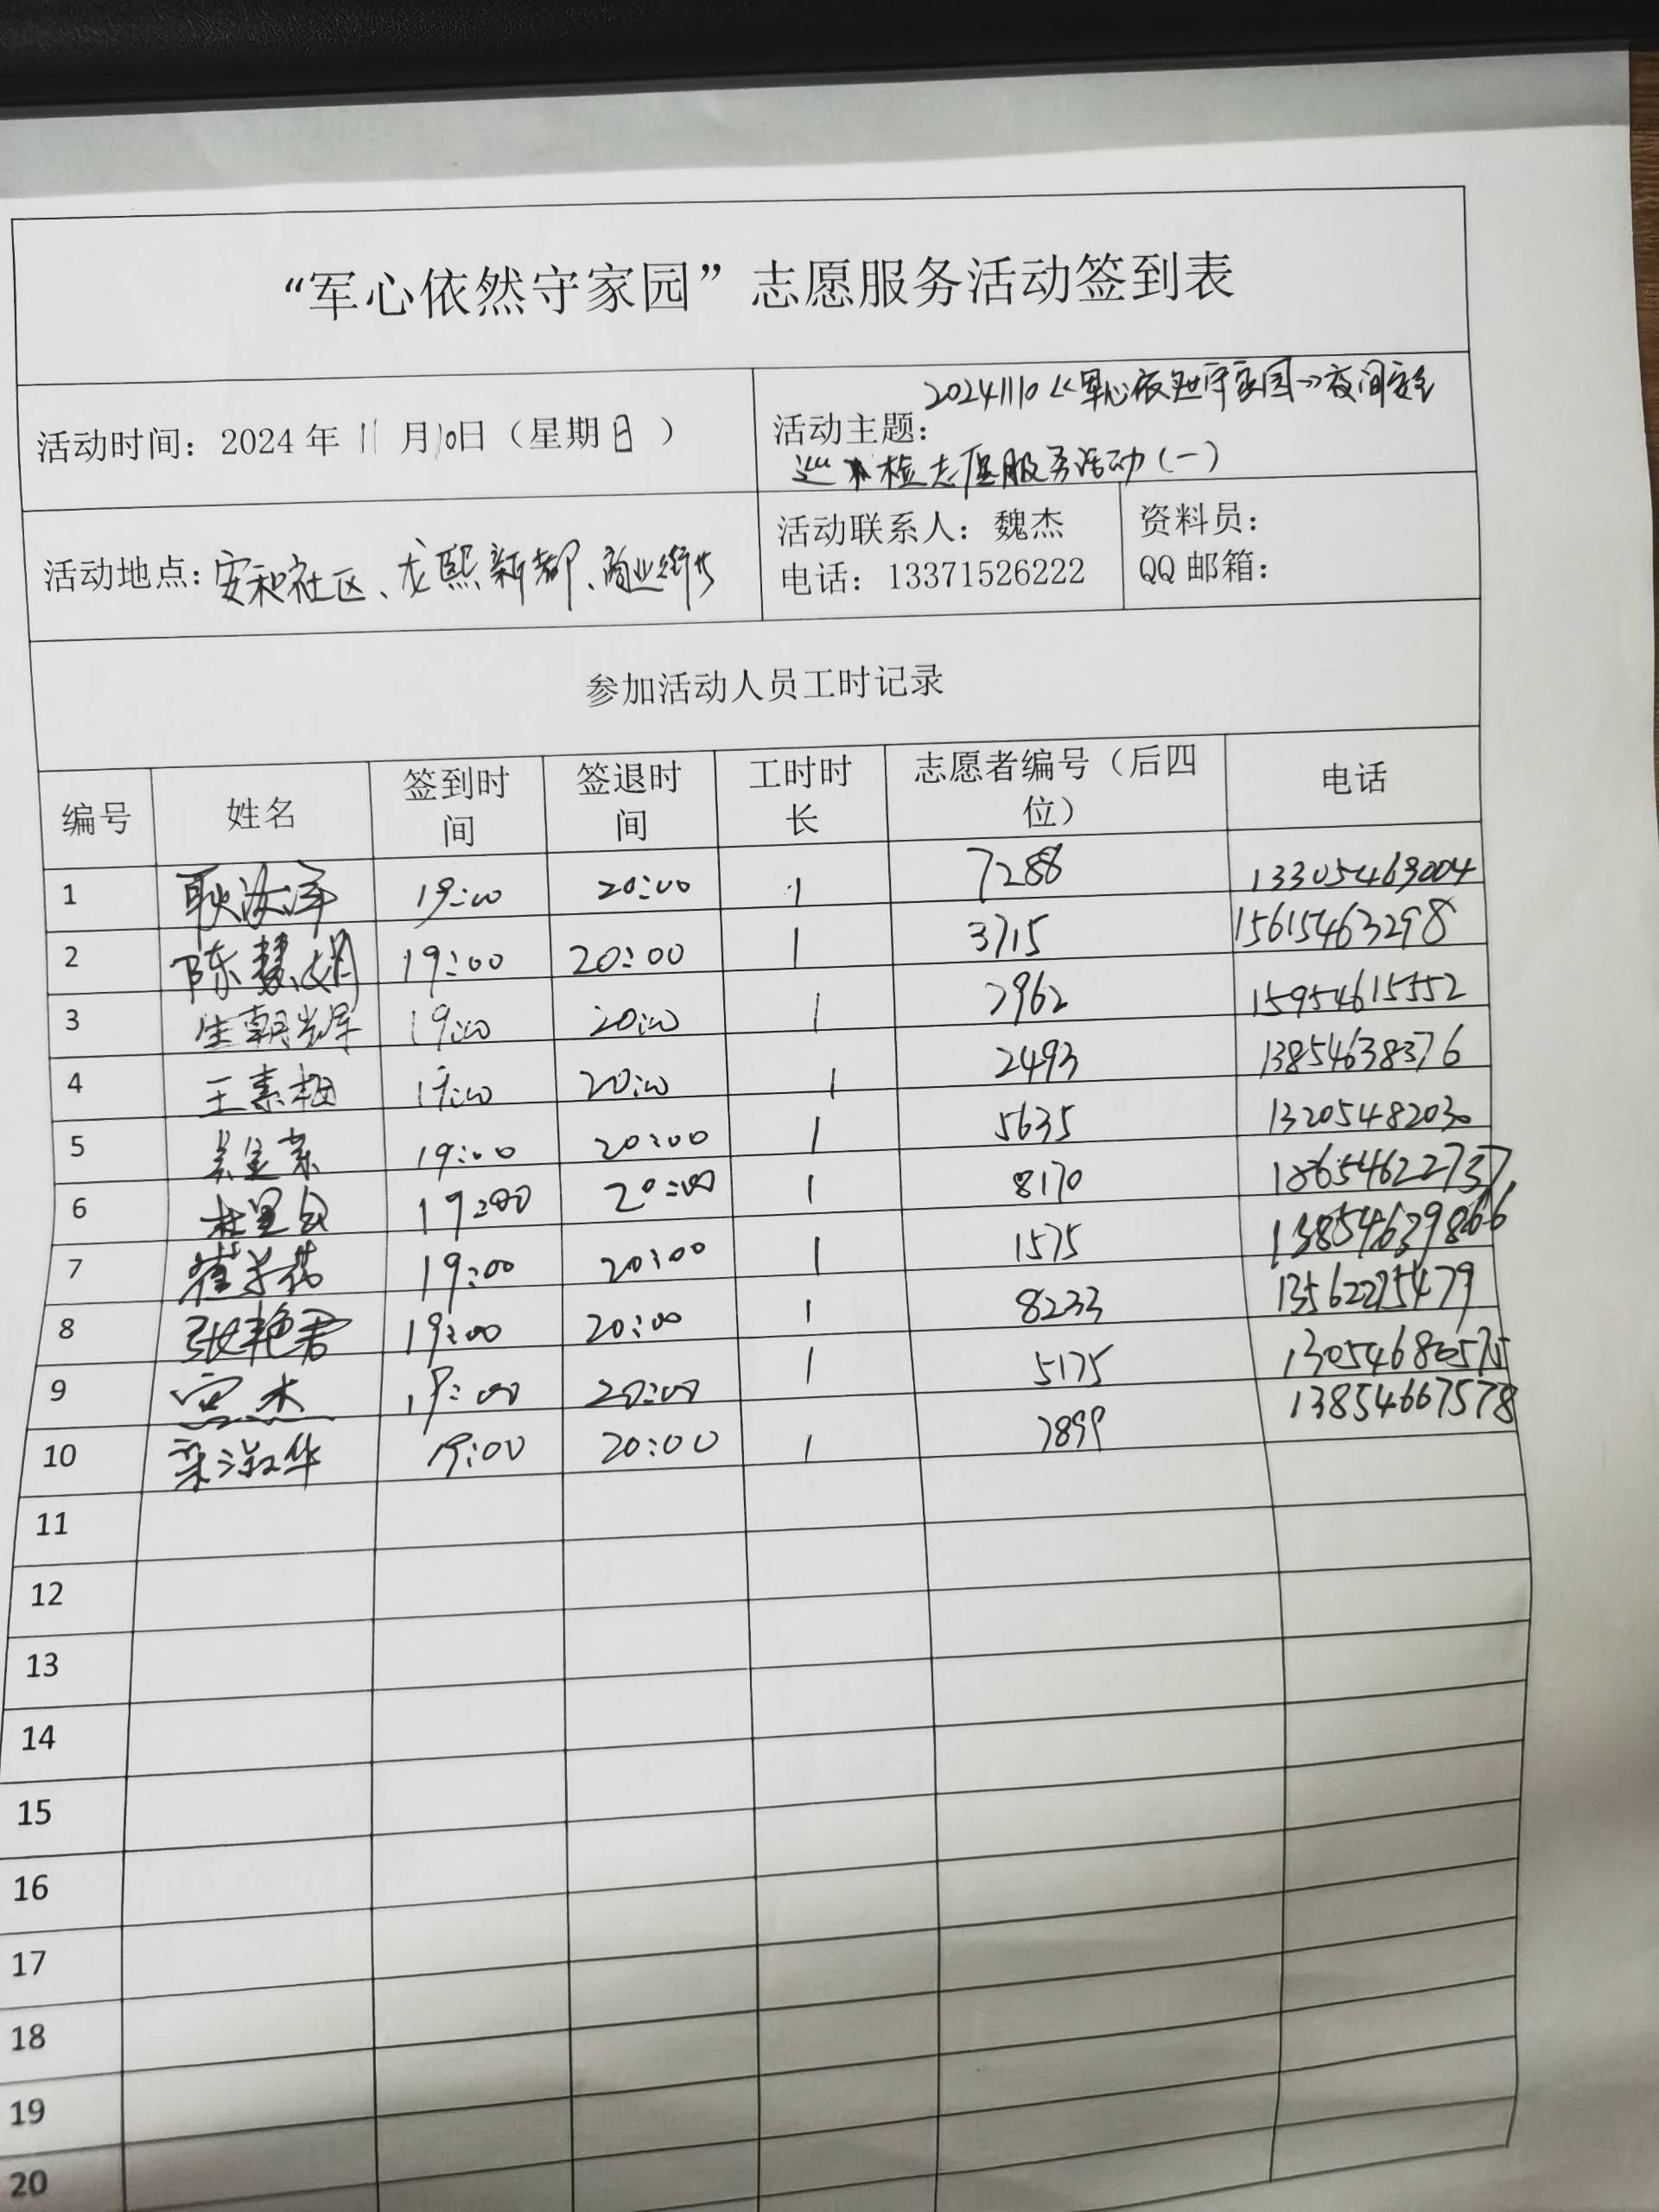 “军心依然守家园”志愿服务活动签到表
活动时间：2024年11月10日（星期日）
活动主题：20241110《军心依然守家园》夜间安全
巡检志愿服务活动(一)
活动地点：安和社区、龙熙新都、商业街
活动联系人：魏杰
电话：13371526222
资料员：
QQ邮箱：
参加活动人员工时记录
编号 姓名 签到时间 签退时间 工时时长 志愿者编号（后四位） 电话
1 19:00 20:00 1 7288 13305469004
2 陈慧娟 19:00 20:00 1 3715 15615463298
3 生朝辉 19:00 20:00 1 7962 15954615552
4 王素梅 19:00 20:00 1 2493 13854638376
5 19:00 20:00 1 5635 13205482030
6 19:00 20:00 1 8170 18654622737
7 19:00 20:00 1 1575 13854639866
8 张艳君 19:00 20:00 1 8233 13562275479
9 19:00 20:00 1 5175
10 梁淑华 19:00 20:00 1 7899 13854667578
11
12
13
14
15
16
17
18
19
20